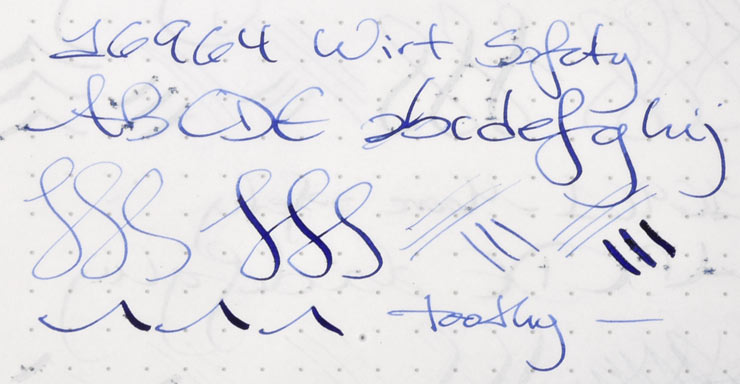 16964 Wirt Safety
ABCDE abcdefghij
toothy —